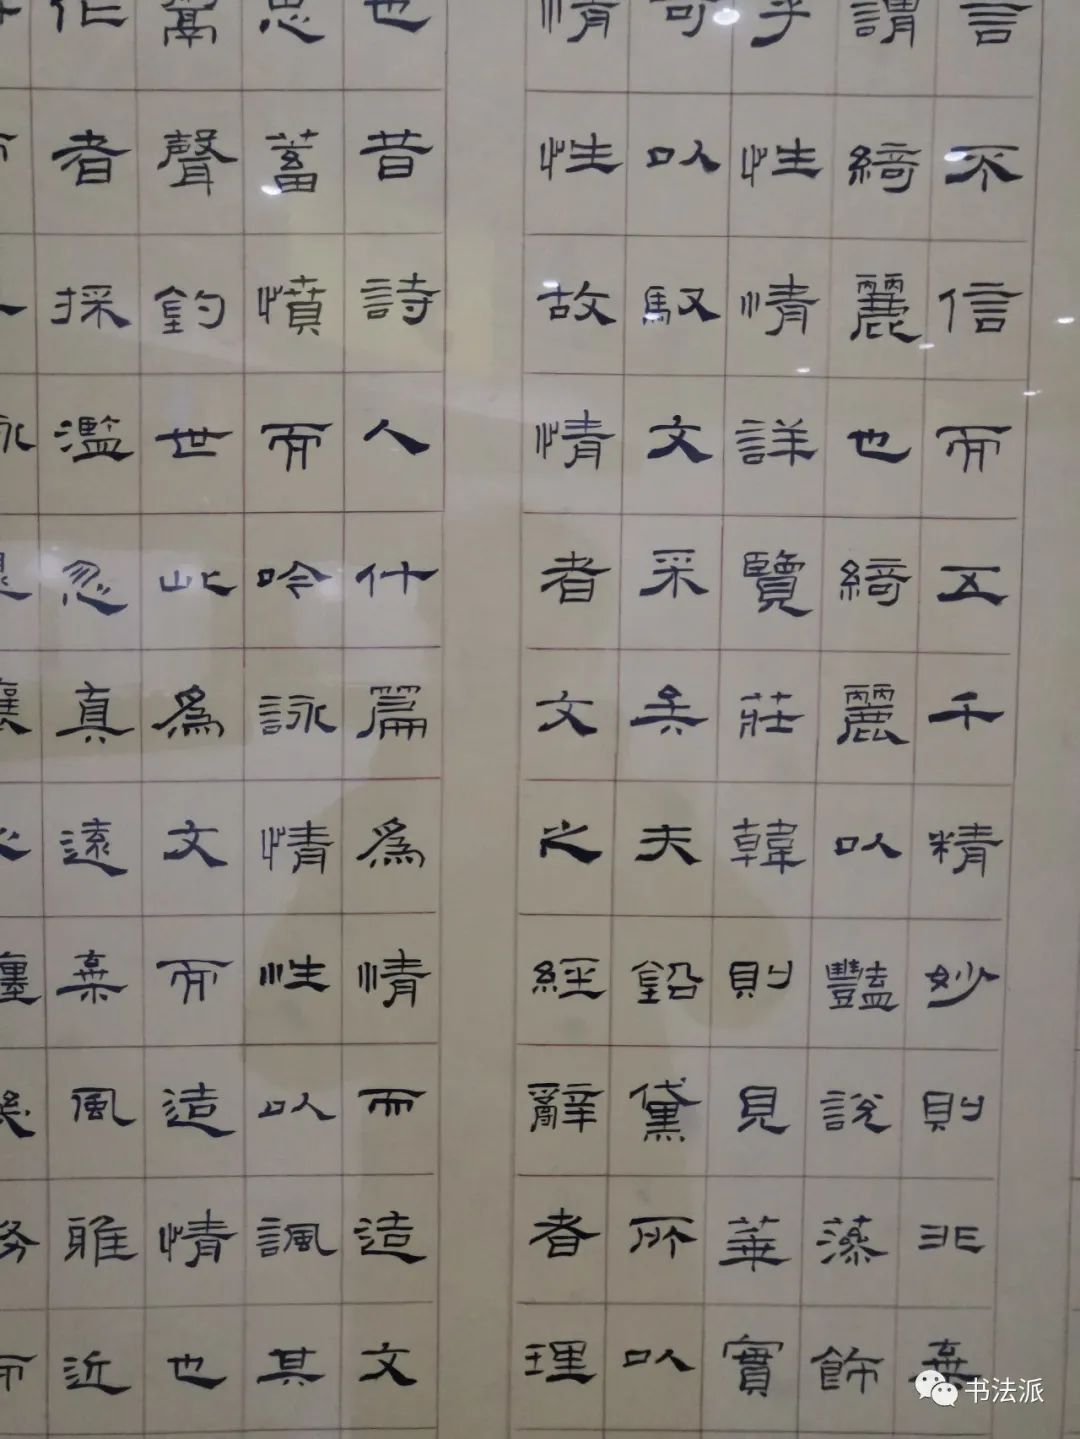 言不信而五千精妙則非棄
謂綺麗也綺麗以豔說藻飾
乎性情詳覽莊韓則見華實
可以馭文采矣夫鉛黛所以
情性故情者文之經辭者理
也昔詩人什篇爲情而造文
思蓄憤而吟詠情性以諷其
鬻聲釣世此爲文而造情也
作者採濫忽真遠棄風雅近
书法派